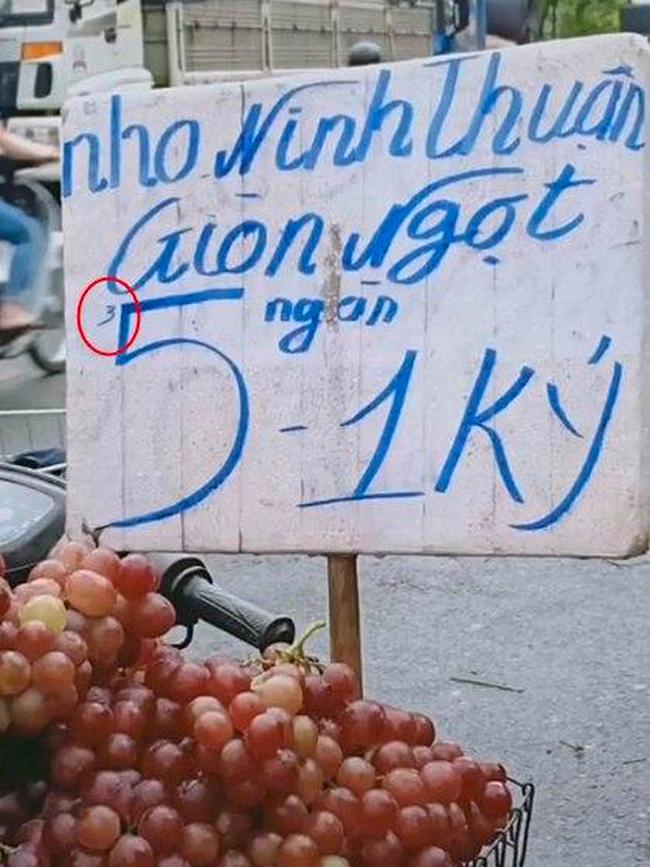 nho Ninh Thuận
Giòn Ngọt
3 5 ngàn - 1 Ký